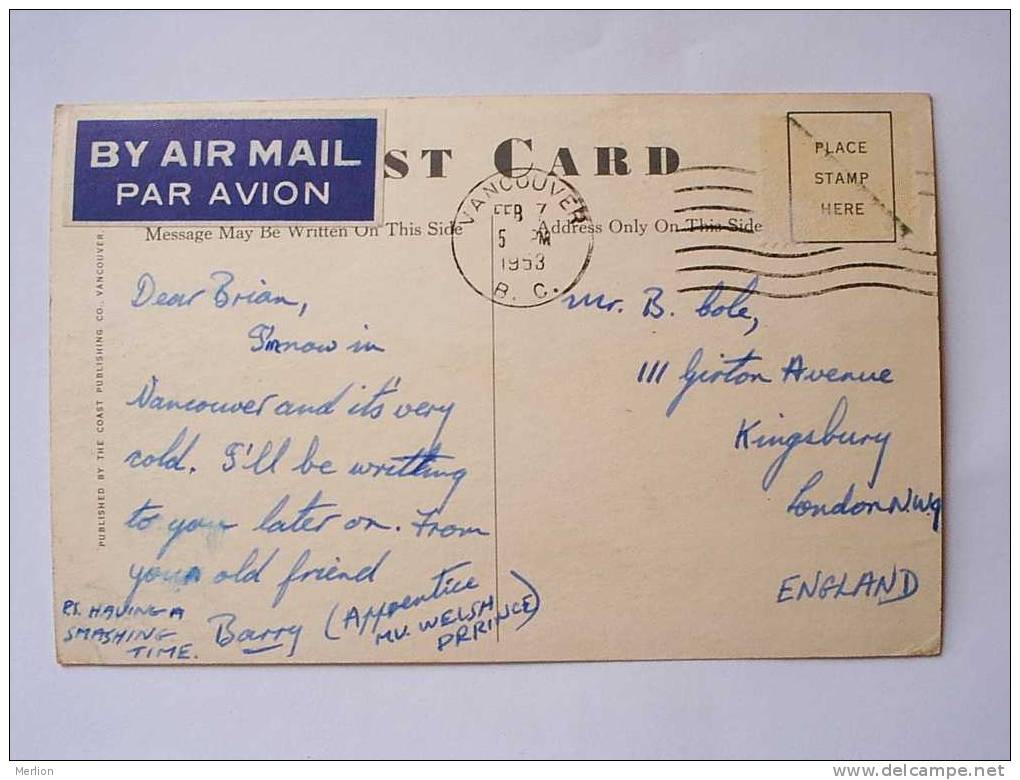 BY AIR MAIL
PAR AVION
ST CARD
PLACE
STAMP
HERE
VANCOUVER
FEB 7
5 PM
1953
B. C.
Message May Be Written On This Side
Address Only On This Side
PUBLISHED BY THE COAST PUBLISHING CO., VANCOUVER,
Dear Brian,
I'm now in
Vancouver and it's very
cold. I'll be writting
to you later on. From
your old friend
Barry (Apprentice
MV. WELSH
PRRINCE)
PS. HAVING A
SMASHING
TIME.
Mr. B. Cole,
111 Girton Avenue
Kingsbury
London N.W.9
ENGLAND
Merlion
www.delcampe.net